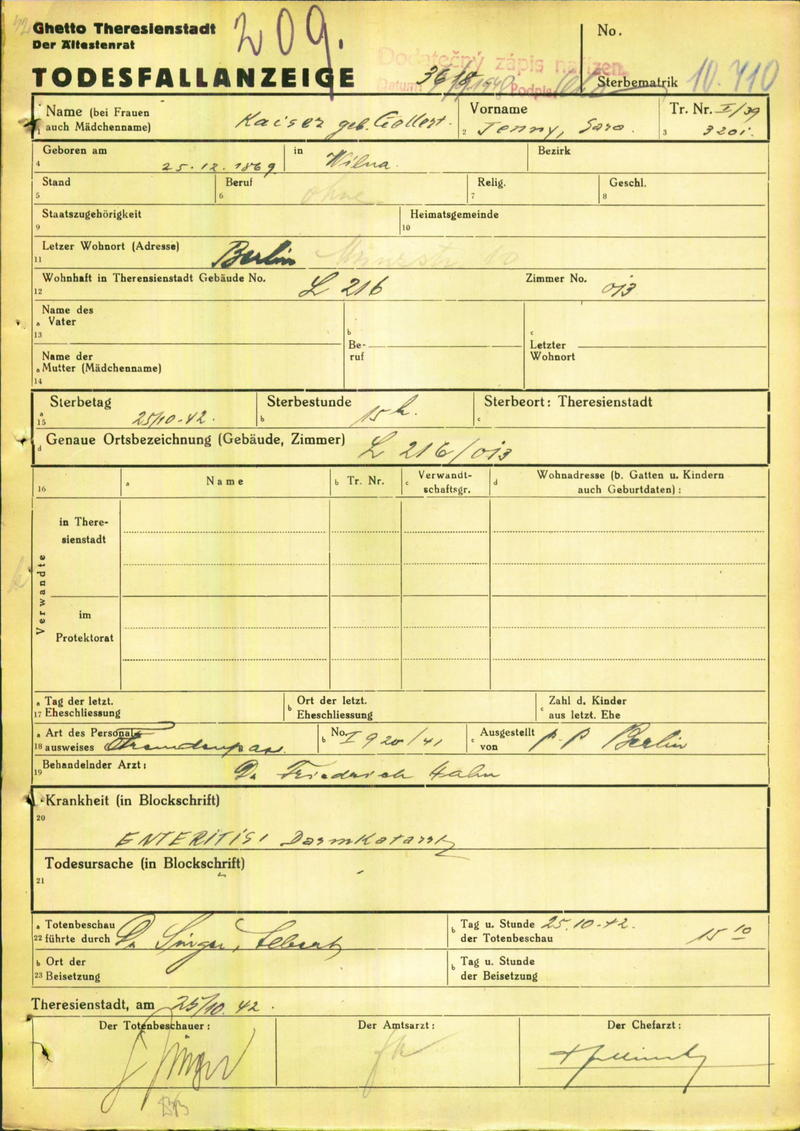 Ghetto Theresienstadt
Der Ältestenrat
209.
No.
TODESFALLANZEIGE
Dodatečný zápis nařízen
Datum Podpis
Sterbematrik 10.410
Name (bei Frauen auch Mädchenname) Kaiser geb.
Vorname Jenny, Sara.
Tr. Nr. I/39
1 2 3 3201.
Geboren am 25.12.1869 in Wilna. Bezirk
4
Stand Beruf ohne Relig. Geschl.
5 6 7 8
Staatszugehörigkeit Heimatsgemeinde
9 10
Letzer Wohnort (Adresse) Berlin
11
Wohnhaft in Therensienstadt Gebäude No. L 216 Zimmer No. 013
12
Name des
a Vater
13
b Beruf
c Letzter Wohnort
Name der
a Mutter (Mädchenname)
14
Sterbetag 25/10.42. Sterbestunde 15 h. Sterbeort: Theresienstadt
a 15 b c
d Genaue Ortsbezeichnung (Gebäude, Zimmer) L 216/013
16 a Name b Tr. Nr. c Verwandt-schaftsgr. d Wohnadresse (b. Gatten u. Kindern auch Geburtdaten):
Verwandte
in There-
sienstadt
im
Protektorat
a Tag der letzt.
17 Eheschliessung
b Ort der letzt. Eheschliessung
c Zahl d. Kinder aus letzt. Ehe
a Art des Personal-
18 ausweises Fremdenpass
b No. I 920/41
c Ausgestellt von P. P. Berlin
Behandelnder Arzt: Dr. Friedrich Hahn
19
a Krankheit (in Blockschrift)
20
ENTERITIS, Darmkatarrh
Todesursache (in Blockschrift)
21
a Totenbeschau
22 führte durch Dr. Singer,
b Tag u. Stunde 25.10.42.
der Totenbeschau 15 10
b Ort der
23 Beisetzung
b Tag u. Stunde
der Beisetzung
Theresienstadt, am 25/10.42.
Der Totenbeschauer: Der Amtsarzt: Der Chefarzt: